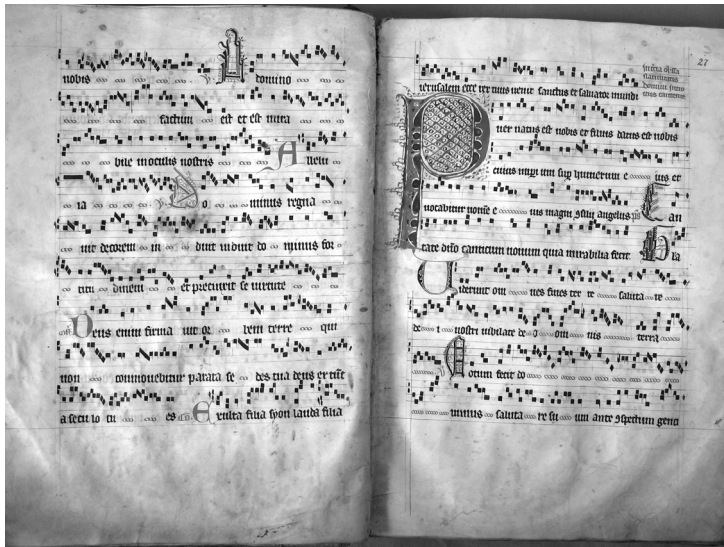 nobis A domino
factum est et est mira
bile in oculis nostris Alleluia
ia Do minus regna
uit decorem in duit induit do minus for
titu dinem et precinxit se uirtute
Deus enim firma uit or bem terre qui
non commouebitur parata se des tua deus ex tunc
a seculo tu es Exulta filia syon lauda filia
27
ierusalem ecce rex tuus uenit sanctus et saluator mundi
Puer natus est nobis et filius datus est nobis
cuius imperium sup humerum e ius et
uocabitur nome e ius magni angelus Can
tate dno canticum nouum quia mirabilia fecit
Uiderunt om nes fines ter re saluta re
de i nostri iubilate de o om nis terra
Notum fecit do
minus saluta re su um ante conspectum genti